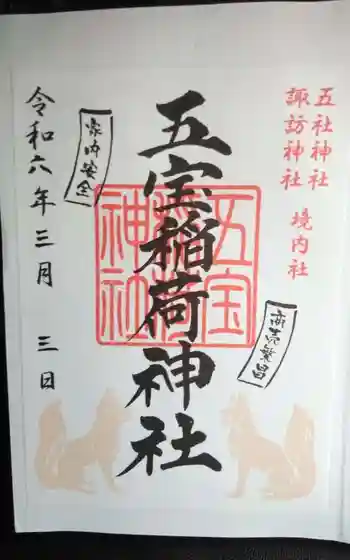 五社神社
諏訪神社 境内社
五宝稲荷神社
五宝稲荷神社
商売繁昌
家内安全
令和六年三月 三日